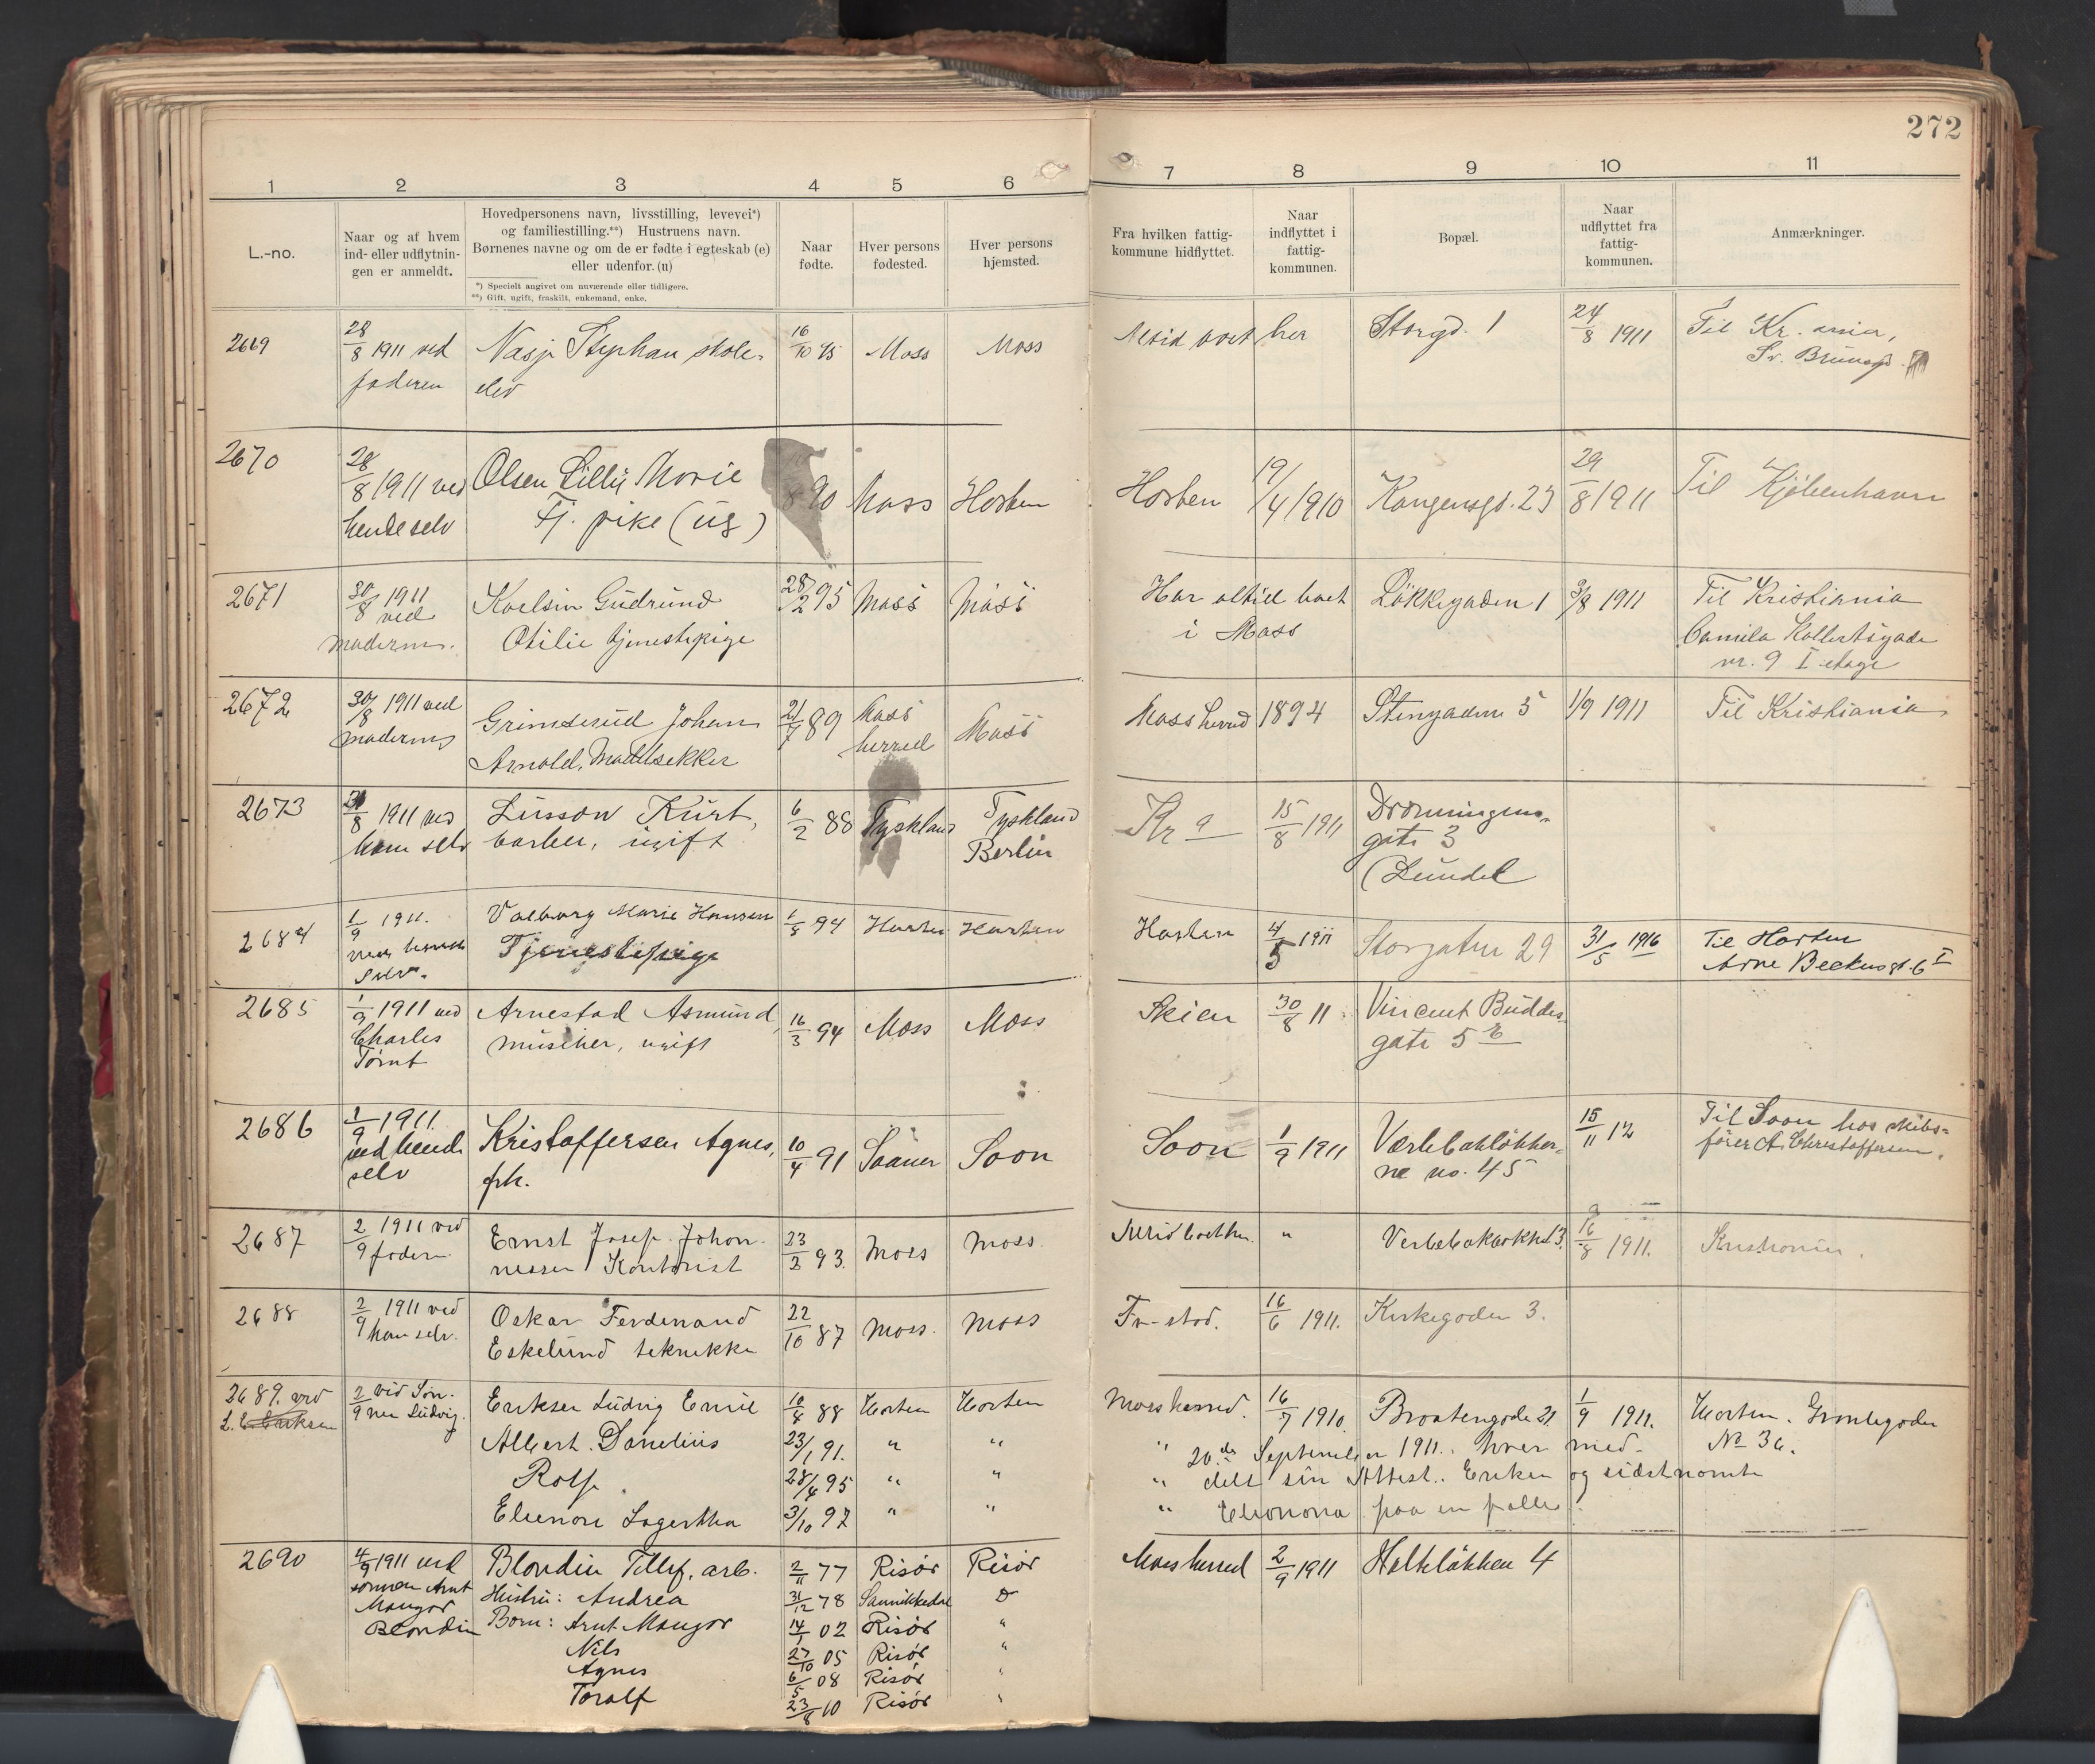 272
1 2 3 4 5 6 7 8 9 10 11
L.-no.
Naar og af hvem
ind- eller udflytnin-
gen er anmeldt.
Hovedpersonens navn, livsstilling, levevei*)
og familiestilling.**) Hustruens navn.
Børnenes navne og om de er fødte i egteskab (e)
eller udenfor. (u)
*) Specielt angivet om nuværende eller tidligere.
**) Gift, ugift, fraskilt, enkemand, enke.
Naar
fødte.
Hver persons
fødested.
Hver persons
hjemsted.
Fra hvilken fattig-
kommune hidflyttet.
Naar
indflyttet i
fattig-
kommunen.
Bopæl.
Naar
udflyttet fra
fattig-
kommunen.
Anmærkninger.
2669 28/8 1911 ved Nasje Stephan skole- 16/10 95 Moss Moss Altid boet her Storgd. 1 24/8 1911 Til Kr.ania,
faderen elev Sv. Brunsgd.
2670 28/8 1911 ved Olsen Lilly Marie 90 Moss Horten Horten 19/4 1910 Kongensgd. 23 29/8 1911 Til Kjøbenhavn
hende selv Tj. pike (ug)
2671 30/8 1911 Gudrund 28/2 95 Moss Moss Har altid boet Løkkegaden 1 3/8 1911 Til Kristiania
ved moderen. Otilie tjenestepige i Moss Camila Kolletsgade
nr. 9 I etage
2672 30/8 1911 ved Grimsrud Johan 21/7 89 Moss Moss Moss herred 1894 Stengaden 5 1/9 1911 Til Kristiania
moderen Arnold, herred
2673 31/8 1911 ved Lusson Kurt, 6/2 88 Tyskland Tyskland Kr a 15/8 1911 Dronningens-
ham selv barber, ugift Berlin gate 3
(Lundel
2684 1/9 1911. Valborg Marie Hansen 1/8 94 Horten Horten Horten 4/5 1911 Storgaten 29 31/5 1916 Til Horten
ved hende selv. Tjenestepige Arne Beckersgt. 6 I
2685 1/9 1911 ved Arnestad Asmund, 16/3 94 Moss Moss Skien 30/8 11 Vincent Buddes-
Charles musiker, ugift gate 5 b
Tørnt
2686 1/9 1911 Kristoffersen Agnes, 10/4 91 Saaner Soon Soon 1/9 1911 Værlebakløkker- 15/11 12 Til Soon hos skibs-
ved hende frk. ne no. 45 fører A. Christoffersen.
selv
2687 2/9 1911 ved Ernst Josef. Johan- 23/2 93. Moss Moss Altid boet her. " 16/8 1911. Kristiania.
fadern. nessen Kontorist
2688 2/9 1911 ved Oskar Ferdinand 22/10 87 Moss. Moss Fr-stad. 16/6 1911. Kirkegaden 3.
ham selv. Eskelund tekniker
2689. ved 2/9 ved Søn- Eriksen Ludvig Emil 10/4 88 Horten Horten Moss herred. 16/7 1910. Braatengade 21 1/9 1911. Horten. Grønlegaden
L. E. Eriksen nen Ludvig. Albert. Danelius 23/1 91. " " " 20.de September 1911. hver med- No 36.
Rolf 28/4 95 " " " delt sin Attest. Eriksen og sidstnevnte
Elenore Lagertha 3/10 97 " " " Eleonora paa en
2690 4/9 1911 ved Blondin Tellef, arb. 2/11 77 Risør Risør Moss herred 2/9 1911 Holtløkken 4
sønnen Arnt Hustru: Andrea 31/12 78 Sannikedal D
Mangor Børn: Arnt Mangor 14/1 02 Risør "
Blondin Nils 27/10 05 Risør "
Agnes 6/5 08 Risør "
Toralf 23/8 10 Risør "